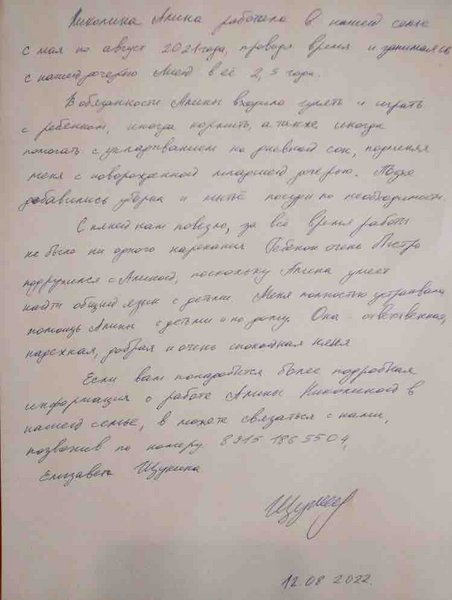 Николина Алина работала в нашей семье
с мая по август 2021 года, проводя время и занимаясь
с нашей дочерью Асей в её 2,5 года.
В обязанности Алины входило гулять и играть
с ребенком, иногда кормить, а также иногда
помогать с укладыванием на дневной сон, подменяя
меня с новорожденной младшей дочерью. Также
добавились уборка и мытьё посуды по необходимости.
С няней нам повезло, за всё время работы
не было ни одного нарекания Ребенок очень быстро
подружился с Алиной, поскольку Алина умеет
найти общий язык с детьми Меня полностью устраивала
помощь Алины с детьми и по дому. Она ответственная,
надежная, добрая и очень спокойная няня
Если вам понадобится более подробная
информация о работе Алины Николиной в
нашей семье, вы можете связаться с нами,
позвонив по номеру 8915 186 5504,
Елизавета Щукина
12.08 2022